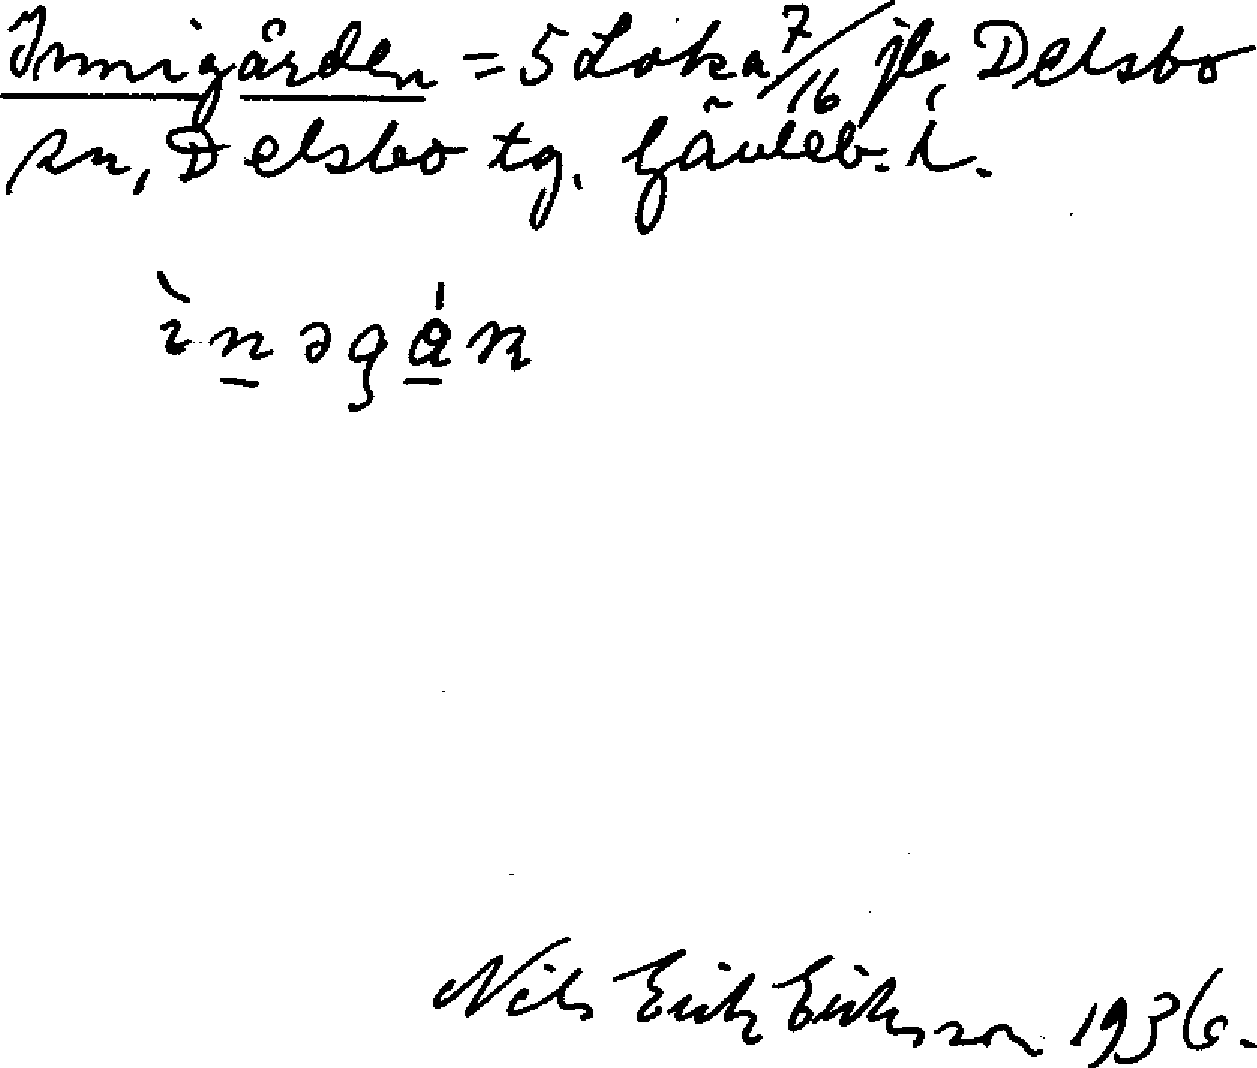 Innigården = 5 Loka 7/16 jb, Delsbo
sn, Delsbo tg. Gävleb. l.
ìnəgån
Nils Erik Eriksson 1936.